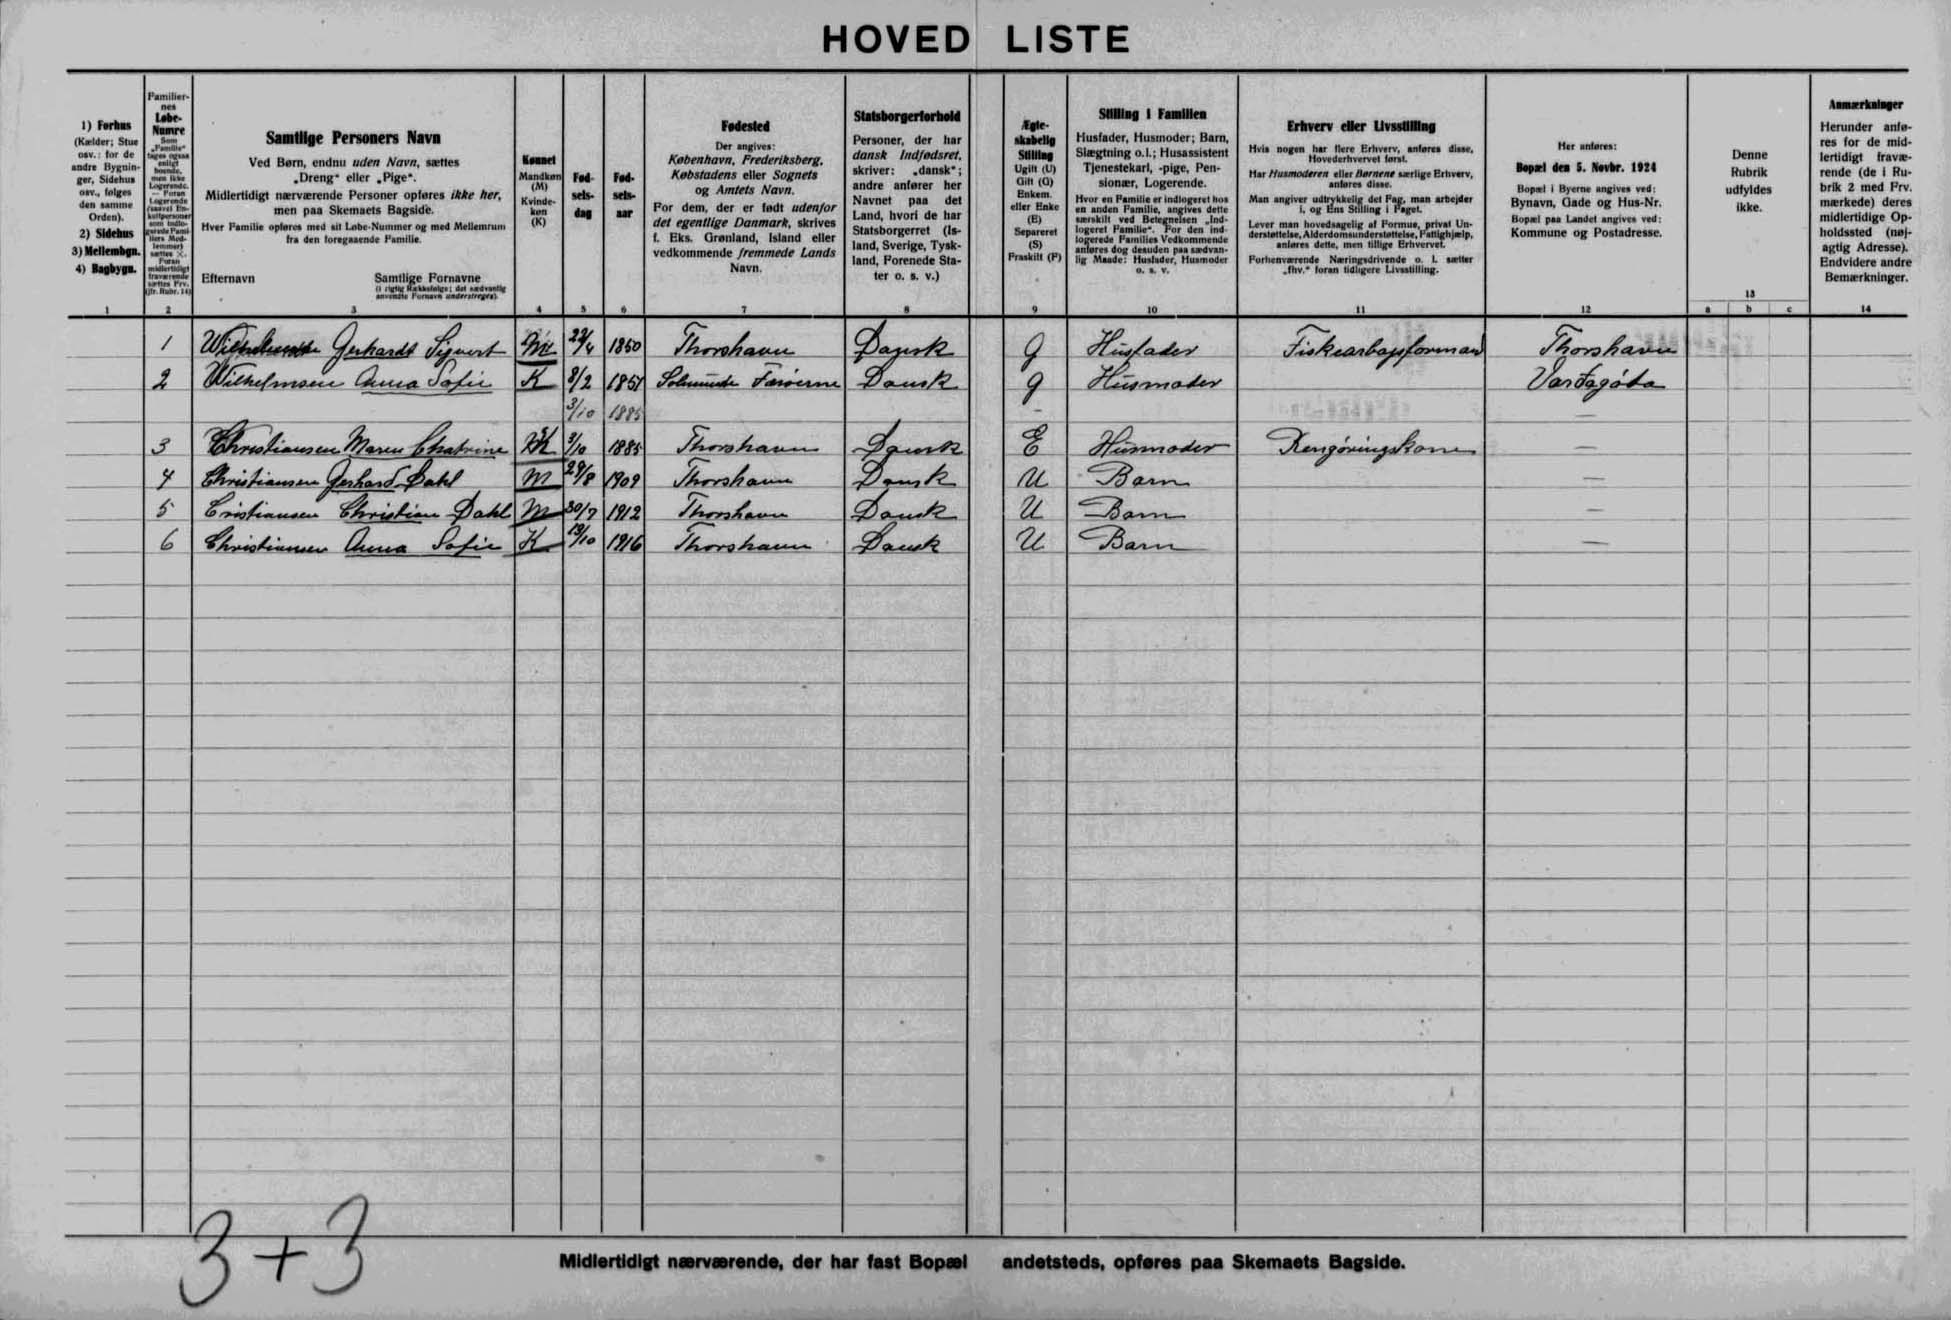 HOVED LISTE
1) Forhus
(Kælder; Stue
osv.: for de
andre Bygnin-
ger, Sidehus
osv., følges
den samme
Orden).
2) Sidehus
3) Mellembgn.
4) Bagbygn.
1
Familier-
nes
Løbe-
Numre
Som
„Familie“
tages ogsaa
enligt
boende,
men ikke
Logerende.
— Foran
Logerende
2
Samtlige Personers Navn
Ved Børn, endnu uden Navn, sættes
„Dreng“ eller „Pige“.
Midlertidigt nærværende Personer opføres ikke her,
men paa Skemaets Bagside.
Hver Familie opføres med sit Løbe-Nummer og med Mellemrum
fra den foregaaende Familie.
Efternavn Samtlige Fornavne
(i rigtig Rækkefølge; det sædvanlig
anvendte Fornavn understreges).
3
Kønnet
Mandkøn
(M)
Kvinde-
køn
(K)
4
Fød-
sels-
dag
5
Fød-
sels-
aar
6
Fødested
Der angives:
København, Frederiksberg,
Købstadens eller Sognets
og Amtets Navn.
For dem, der er født udenfor
det egentlige Danmark, skrives
f. Eks. Grønland, Island eller
vedkommende fremmede Lands
Navn.
7
Statsborgerforhold
Personer, der har
dansk Indfødsret,
skriver: „dansk“;
andre anfører her
Navnet paa det
Land, hvori de har
Statsborgerret (Is-
land, Sverige, Tysk-
land, Forenede Sta-
ter o. s. v.)
8
Ægte-
skabelig
Stilling
Ugift (U)
Gift (G)
Enkem.
eller Enke
(E)
Separeret
(S)
Fraskilt (F)
9
Stilling i Familien
Husfader, Husmoder; Barn,
Slægtning o.l.; Husassistent
Tjenestekarl, -pige, Pen-
sionær, Logerende.
Hvor en Familie er indlogeret hos
en anden Familie, angives dette
særskilt ved Betegnelsen „Ind-
logeret Familie“. For den ind-
logerede Families Vedkommende
anføres dog desuden paa sædvan-
lig Maade: Husfader, Husmoder
o. s. v.
10
Erhverv eller Livsstilling
Hvis nogen har flere Erhverv, anføres disse,
Hovederhvervet først.
Har Husmoderen eller Børnene særlige Erhverv,
anføres disse.
Man angiver udtrykkelig det Fag, man arbejder
i, og Ens Stilling i Faget.
Lever man hovedsagelig af Formue, privat Un-
derstøttelse, Alderdomsunderstøttelse, Fattighjælp,
anføres dette, men tillige Erhvervet.
Forhenværende Næringsdrivende o. l. sætter
„fhv.“ foran tidligere Livsstilling.
11
Her anføres:
Bopæl den 5. Novbr. 1924
Bopæl i Byerne angives ved:
Bynavn, Gade og Hus-Nr.
Bopæl paa Landet angives ved:
Kommune og Postadresse.
12
Denne
Rubrik
udfyldes
ikke.
13
a b c
Anmærkninger
Herunder anfø-
res for de mid-
lertidigt fravæ-
rende (de i Ru-
brik 2 med Frv.
mærkede) deres
midlertidige Op-
holdssted (nøj-
agtig Adresse).
Endvidere andre
Bemærkninger.
14
1 Gerhardt Sigvert M 1850 Thorshavn Dansk G Husfader Thorshavn
2 Wilhelmsen Anna Sofie K 8/2 1851 Færøerne Dansk g Husmoder Varðagøta
3/10 1885 –
3 Christiansen Maren Chatrine K 3/10 1885 Thorshavn Dansk E Husmoder Rengøringskone —
4 Christiansen Gerhard Dahl M 29/8 1909 Thorshavn Dansk U Barn —
5 Cristiansen Christian Dahl M 30/7 1912 Thorshavn Dansk U Barn —
6 Christiansen Anna Sofie K 19/10 1916 Thorshavn Dansk U Barn —
3+3
Midlertidigt nærværende, der har fast Bopæl andetsteds, opføres paa Skemaets Bagside.